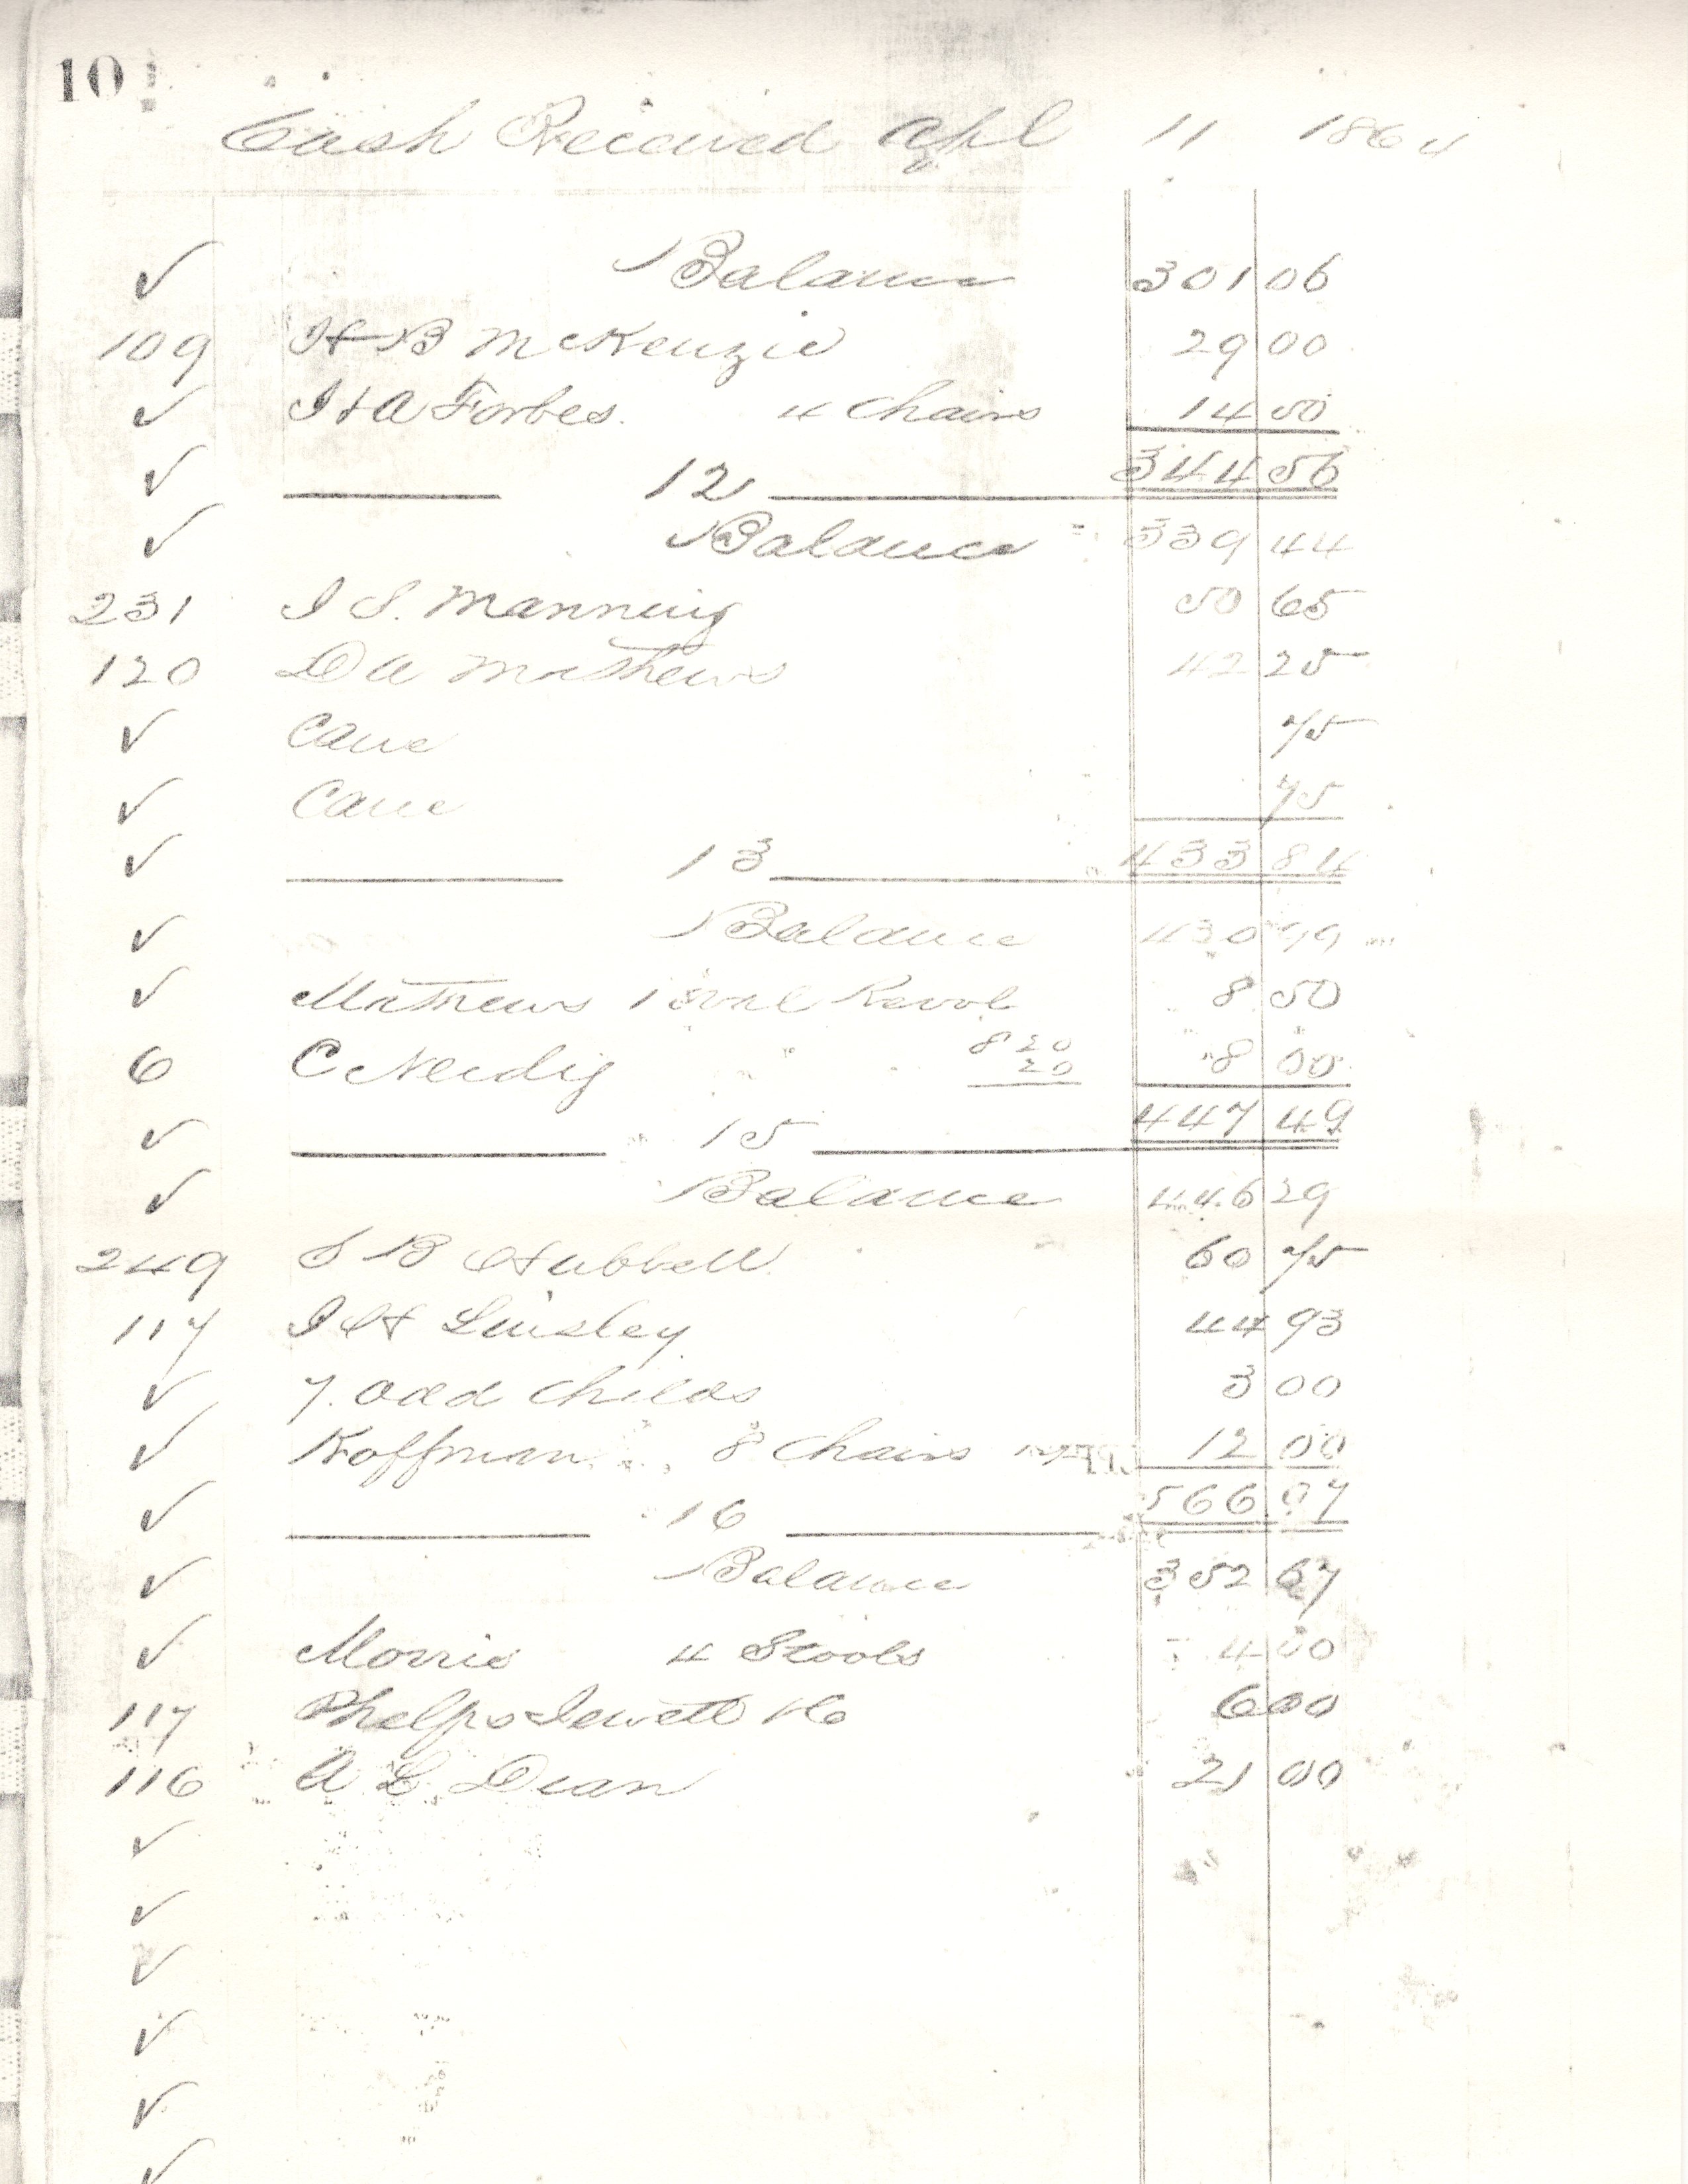 10
Cash Received Apl 11 1864
✓ Balance 301 06
109 H B McKenzie 29 00
✓ I & A Forbes. 4 Chairs 14 50
✓ 12 344 56
✓ Balance 339 44
231 I S. Manning 50 65
120 D A Mathews 42 25
✓ Cane 75
✓ Cane 75
✓ 13 433 84
✓ Balance 430 99
✓ Mathews 1 Oval Revol 8 50
8 20
6 C Neidig 20 8 00
✓ 15 447 49
✓ Balance 446 29
249 S B Hubbell 60 75
117 I H Linsley 44 93
✓ 7. Odd Childs 3 00
✓ Hoffman 8 Chairs 12 00
✓ 16 566 97
✓ Balance 352 67
✓ Morris 4 Stools 4 00
117 Phelps Jewett & Co 6 00
116 A L Dean 21 00
✓
✓
✓
✓
✓
✓